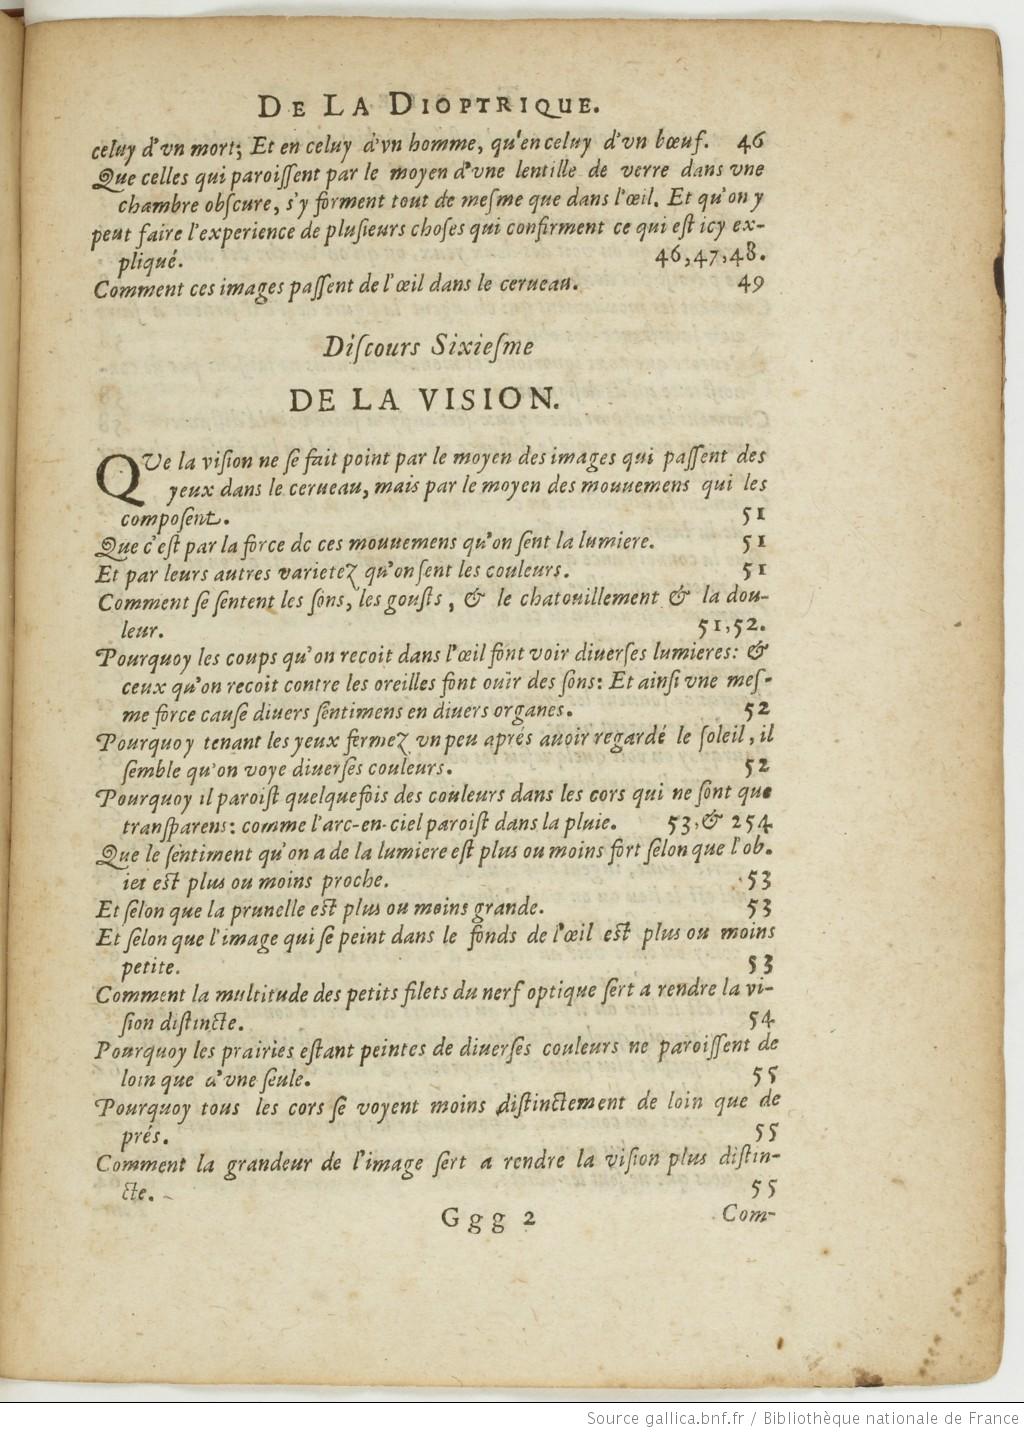 DE LA DIOPTRIQUE.
celuy d'vn mort; Et en celuy d'vn homme, qu'en celuy d'vn bœuf. 46
Que celles qui paroiſſent par le moyen d'vne lentille de verre dans vne
chambre obſcure, s'y forment tout de meſme que dans l'œil. Et qu'on y
peut faire l'experience de pluſieurs choſes qui confirment ce qui eſt icy ex-
pliqué. 46,47,48.
Comment ces images paſſent de l'œil dans le cerueau. 49
Diſcours Sixieſme
DE LA VISION.
QVe la viſion ne ſe fait point par le moyen des images qui paſſent des
yeux dans le cerueau, mais par le moyen des mouuemens qui les
compoſent. 51
Que c'eſt par la force de ces mouuemens qu'on ſent la lumiere. 51
Et par leurs autres varietez qu'on ſent les couleurs. 51
Comment ſe ſentent les ſons, les gouſts, & le chatouillement & la dou-
leur. 51,52.
Pourquoy les coups qu'on recoit dans l'œil font voir diuerſes lumieres: &
ceux qu'on recoit contre les oreilles font ouïr des ſons: Et ainſi vne meſ-
me force cauſe diuers ſentimens en diuers organes. 52
Pourquoy tenant les yeux fermez vn peu aprés auoir regardé le ſoleil, il
ſemble qu'on voye diuerſes couleurs. 52
Pourquoy il paroiſt quelquefois des couleurs dans les cors qui ne ſont que
tranſparens: comme l'arc-en-ciel paroiſt dans la pluie. 53,& 254
Que le ſentiment qu'on a de la lumiere eſt plus ou moins fort ſelon que l'ob-
iet eſt plus ou moins proche. 53
Et ſelon que la prunelle eſt plus ou moins grande. 53
Et ſelon que l'image qui ſe peint dans le fonds de l'œil eſt plus ou moins
petite. 53
Comment la multitude des petits filets du nerf optique ſert a rendre la vi-
ſion diſtincte. 54
Pourquoy les prairies eſtant peintes de diuerſes couleurs ne paroiſſent de
loin que d'vne ſeule. 55
Pourquoy tous les cors ſe voyent moins diſtinctement de loin que de
prés. 55
Comment la grandeur de l'image ſert a rendre la viſion plus diſtin-
cte. 55
Ggg 2 Com-
Source gallica.bnf.fr / Bibliothèque nationale de France